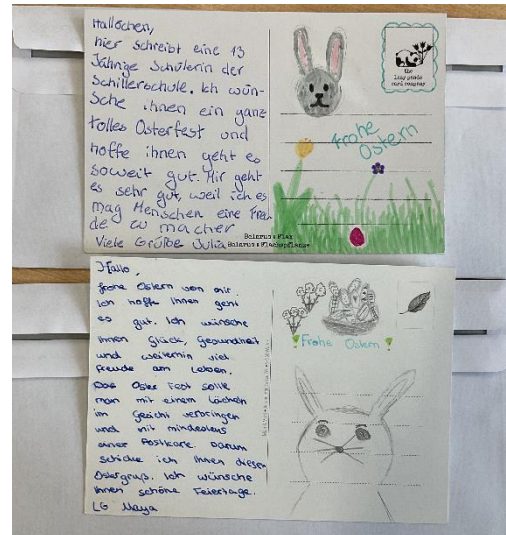 Hallöchen,
hier schreibt eine 13
Jährige Schülerin der
Schillerschule. Ich wün-
sche ihnen ein ganz
tolles Osterfest und
hoffe ihnen geht es
soweit gut. Mir geht
es sehr gut, weil ich es
mag Menschen eine Freu
de zu machen
Viele Grüße Julia
the
lazy panda
card company
Frohe
Ostern
Belarus: Flax
Belarus: Flachspflanze
Hallo,
frohe Ostern von mir.
Ich hoffe Ihnen geht
es gut. Ich wünsche
Ihnen Glück, Gesundheit
und weiterhin viel
Freude am Leben.
Das Oster Fest sollte
man mit einem Lächeln
im Gesicht verbringen
und mit mindestens
einer Postkarte. Darum
schicke ich Ihnen diesen
Ostergruß. Ich wünsche
Ihnen schöne Feiertage.
LG Maya
! Frohe Ostern !